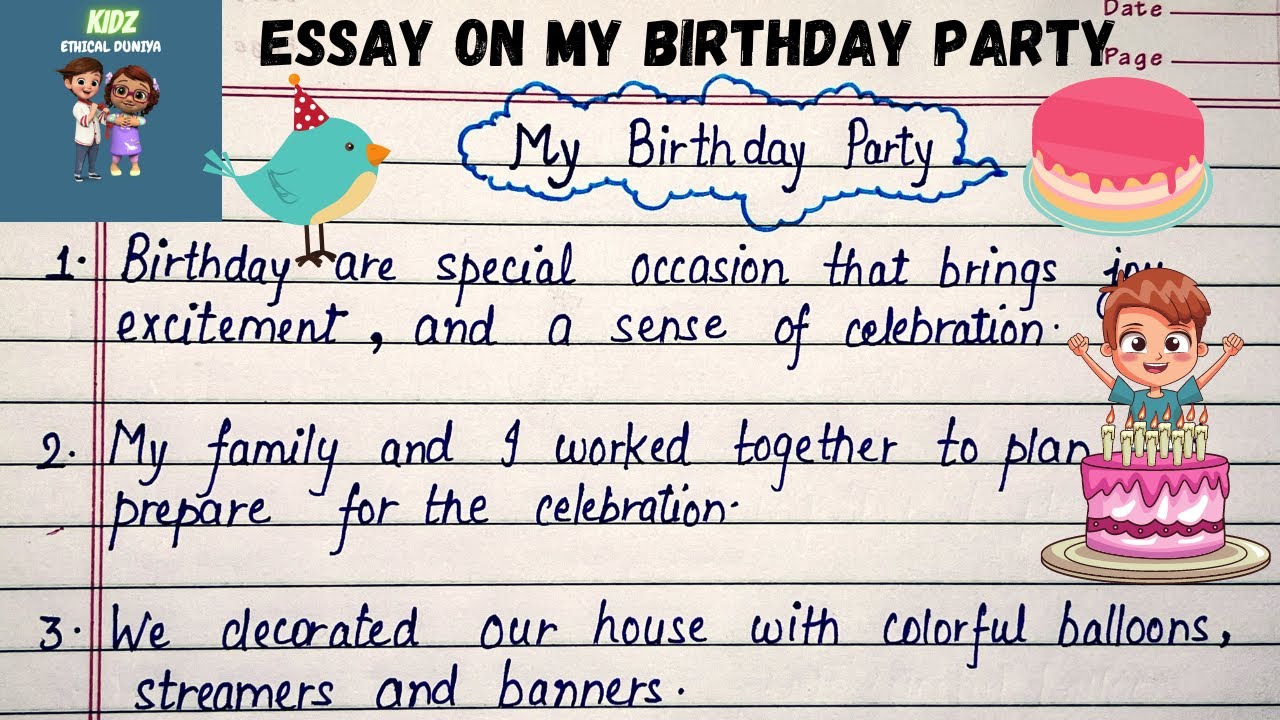 KIDZ
ETHICAL DUNIYA
ESSAY ON MY BIRTHDAY PARTY
Date
Page
My Birthday Party
1. Birthday are special occasion that brings
excitement, and a sense of celebration.
2. My family and I worked together to plan
prepare for the celebration.
3. We decorated our house with colorful balloons,
streamers and banners.